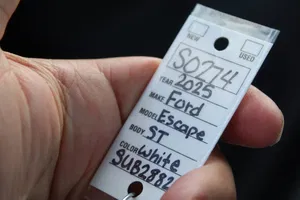 NEW USED
SO274
YEAR 2025
MAKE Ford
MODEL Escape
BODY ST
COLOR White
SUB2882